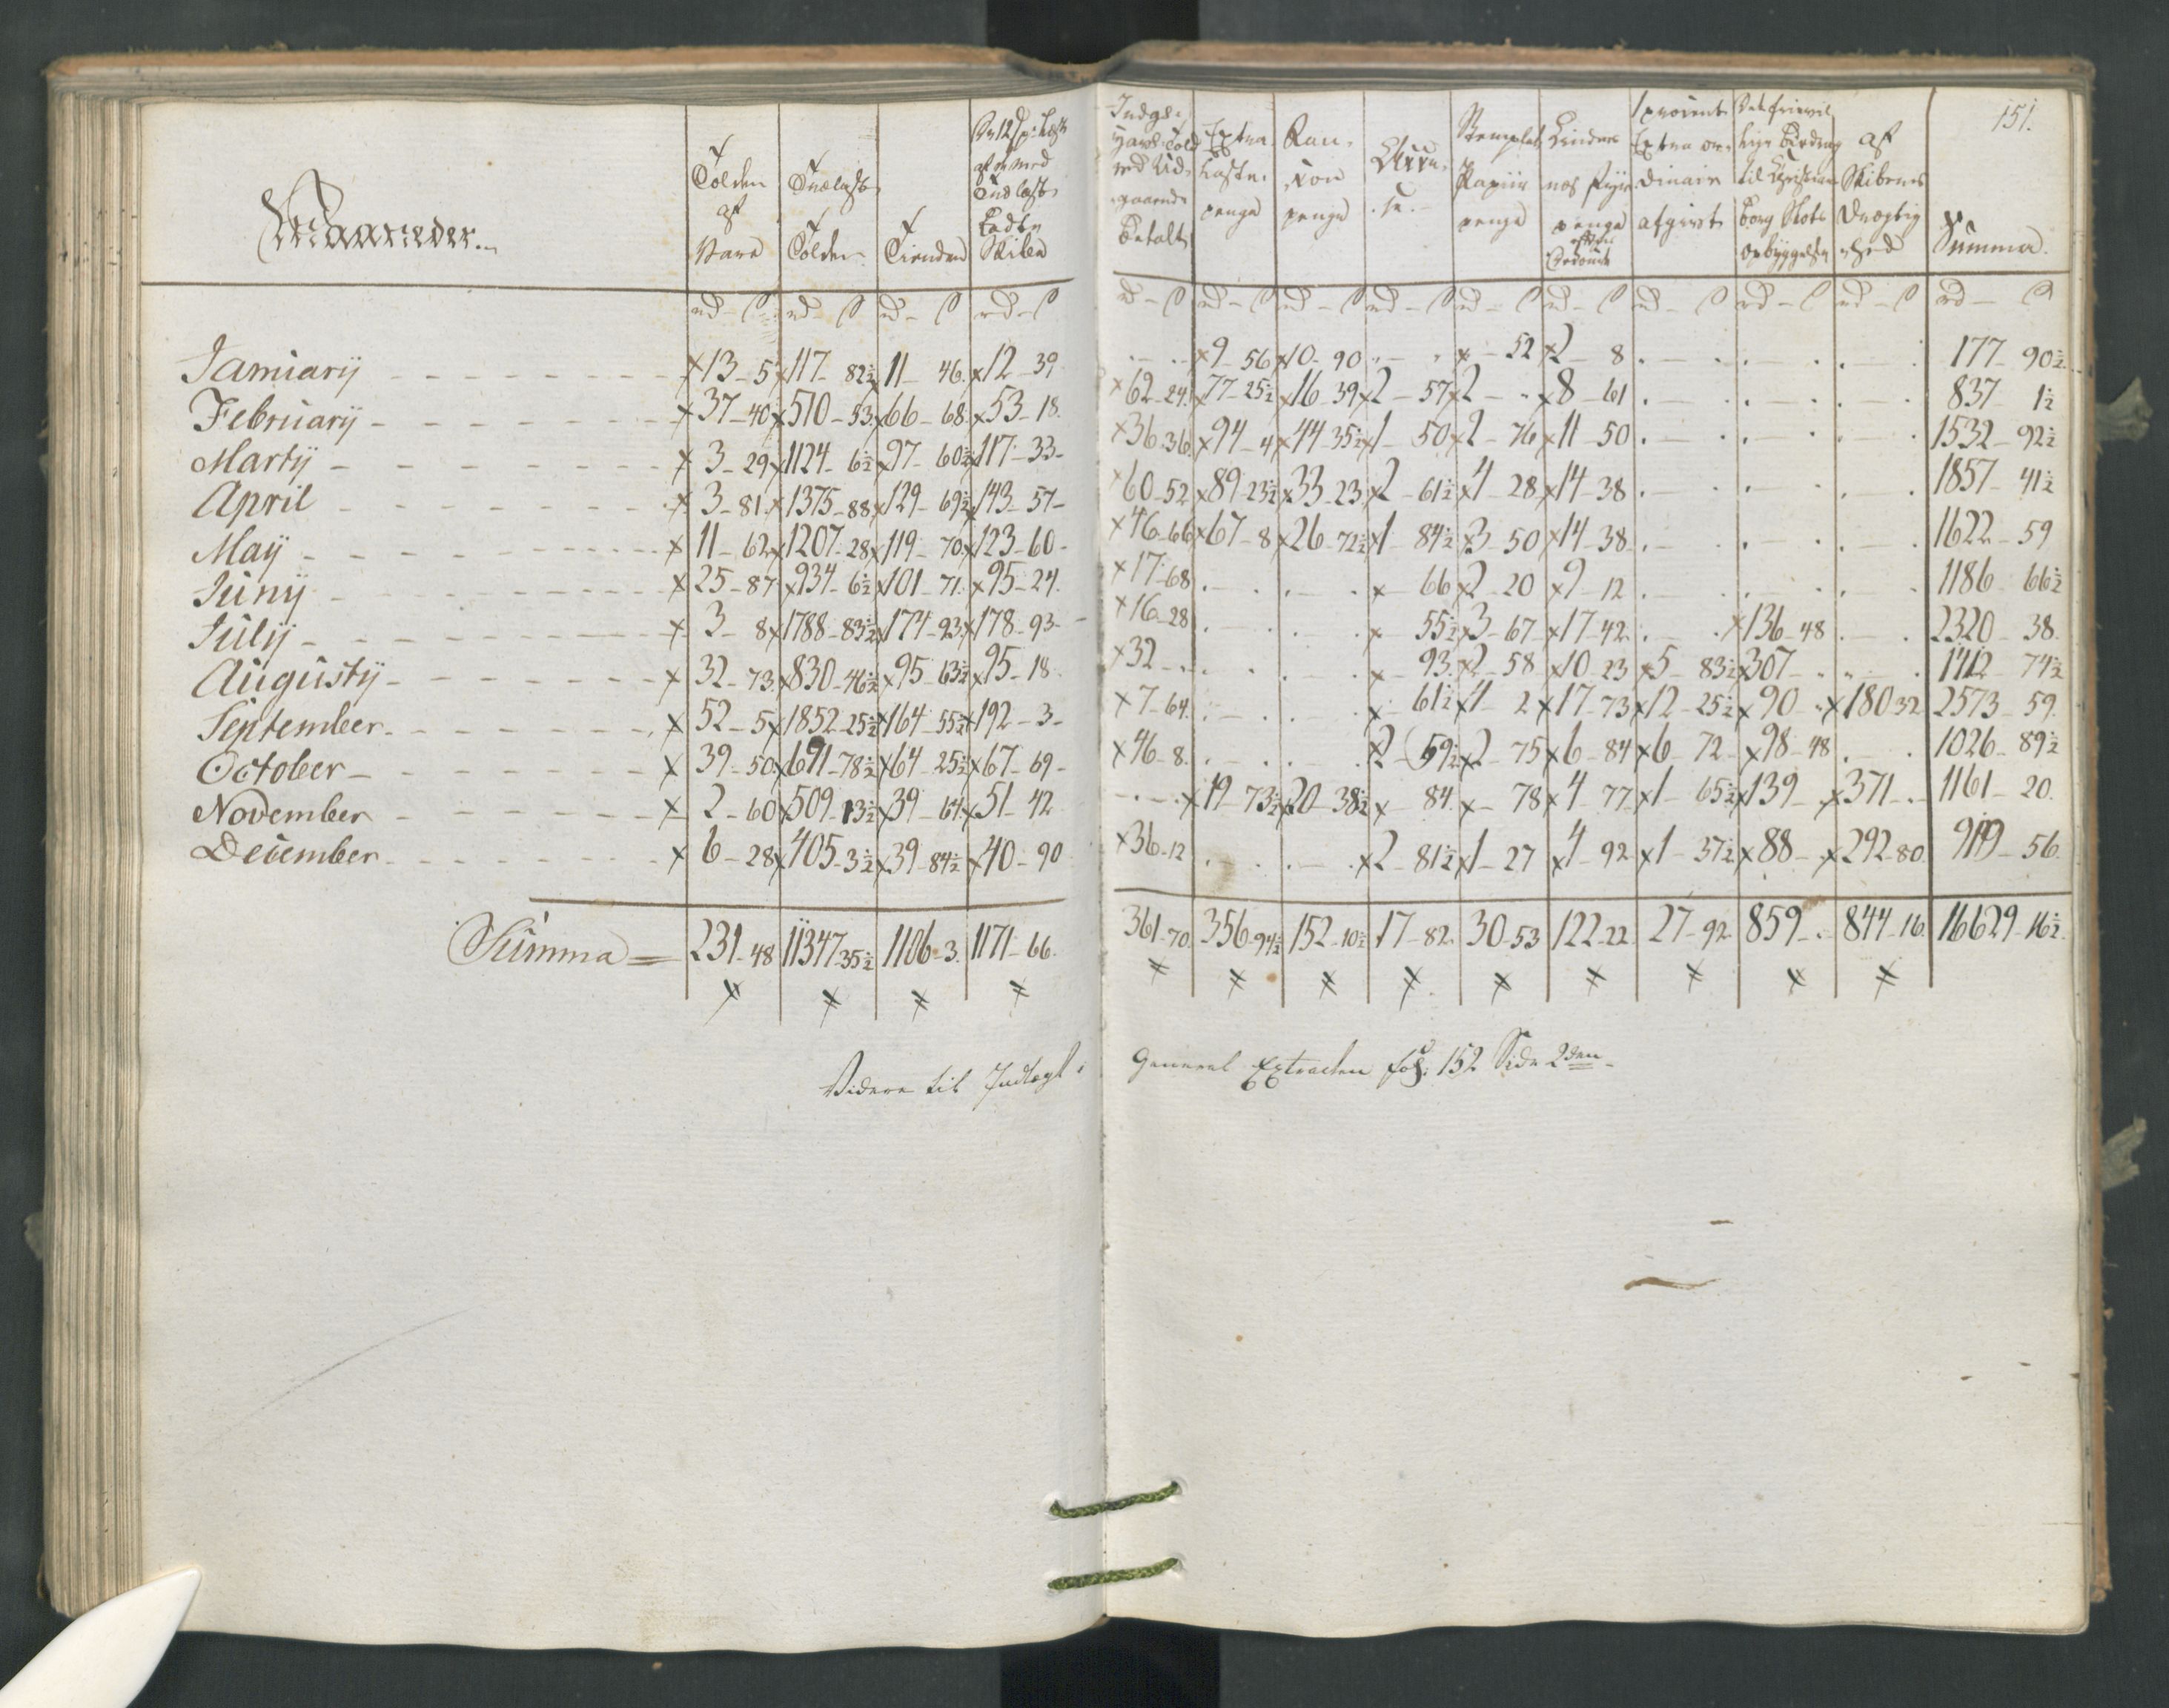 151.
Maaneder.
Tolden af Vare
Trælast Tolden
Tienden
Extra Laste penge
Ran- xon penge
Stemplet Papiir penge
1 procent Extra or- dinair afgivt
af Skibenes Drægtig- hed
Summa.
rd - ß rd - ß rd - ß rd - ß rd - ß rd - ß rd - ß rd - ß rd - ß rd - ß rd - ß rd - ß rd - ß rd - ß
Januarij - - - 13 - 5 117 - 82½ 11 - 46. 12 - 39 . - . 9 - 56 10 - 90 . - . - 52 2 - 8 . - . . - . . - . 177 - 90½
Februarij - - - 37 - 40 510 - 53. 66 - 68. 53 - 18. 62 - 24. 77 - 25½ 16 - 39 2 - 57 2 - . 8 - 61 . - . . - . . - . 837 - 1½
Martij - - - 3 - 29 1124 - 6½ 97 - 60½ 117 - 33 - 36 - 36. 94 - 4 44 - 35½ 1 - 50 2 - 76 11 - 50 . - . . - . . - . 1532 - 92½
April - - - 3 - 81. 1375 - 88 129 - 69½ 143 - 57 - 60 - 52 89 - 23½ 33 - 23 2 - 61½ 4 - 28 14 - 38 . - . . - . . - . 1857 - 41½
Maij - - - 11 - 62 1207 - 28 119 - 70. 123 - 60 - 46 - 66 67 - 8 26 - 72½ 1 - 84½ 3 - 50 14 - 38 . - . . - . . - . 1622 - 59
Junij - - - 25 - 87 934 - 6½ 101 - 71. 95 - 24. 17 - 68 . - . . - . - 66 2 - 20 9 - 12 . - . . - . . - . 1186 - 66½
Julij - - - 3 - 8 1788 - 83½ 174 - 93. 178 - 93 - 16 - 28 . - . . - . - 55½ 3 - 67 17 - 42 . - . 136 - 48 . - . 2320 - 38.
Augustij - - - 32 - 73. 830 - 46½ 95 - 63½ 95 - 18. 32 - . . - . . - . - 93. 2 - 58 10 - 23 5 - 83½ 307 - . . - . 1412 - 74½
September - - - 52 - 5 1852 - 25½ 164 - 55½ 192 - 3 - 7 - 64. . - . . - . - 61½ 4 - 2 17 - 73 12 - 25½ 90 - . 180 32 2573 - 59.
October - - - 39 - 50. 691 - 78½ 64 - 25½ 67 - 69 - 46 - 8. . - . . - . 2 - 59½ 2 - 75 6 - 84 6 - 72 - 98 - 48 . - . 1026 - 89½
November - - - 2 - 60 509 - 13½ 39 - 64. 51 - 42 . - . 19 - 73½ 20 - 38½ - 84. - 78 4 - 77 1 - 65½ 139 - . 371 - . 1161 - 20.
December - - - 6 - 28 405 - 3½ 39 - 84½ 40 - 90 36 - 12 . - . . - . 2 - 81½ 1 - 27 4 - 92 1 - 37½ 88 - . 292 - 80. 919 - 56.
Summa = 231 - 48 11347 - 35½ 1106 - 3. 1171 - 66. 361 - 70. 356 - 94½ 152 - 10½ 17 - 82. 30 - 53 122 - 22. 27 - 92. 859 - . 844 - 16. 16629 - 16½.
Videre til Indtægt i General Extracten fol: 152 Side 2den -